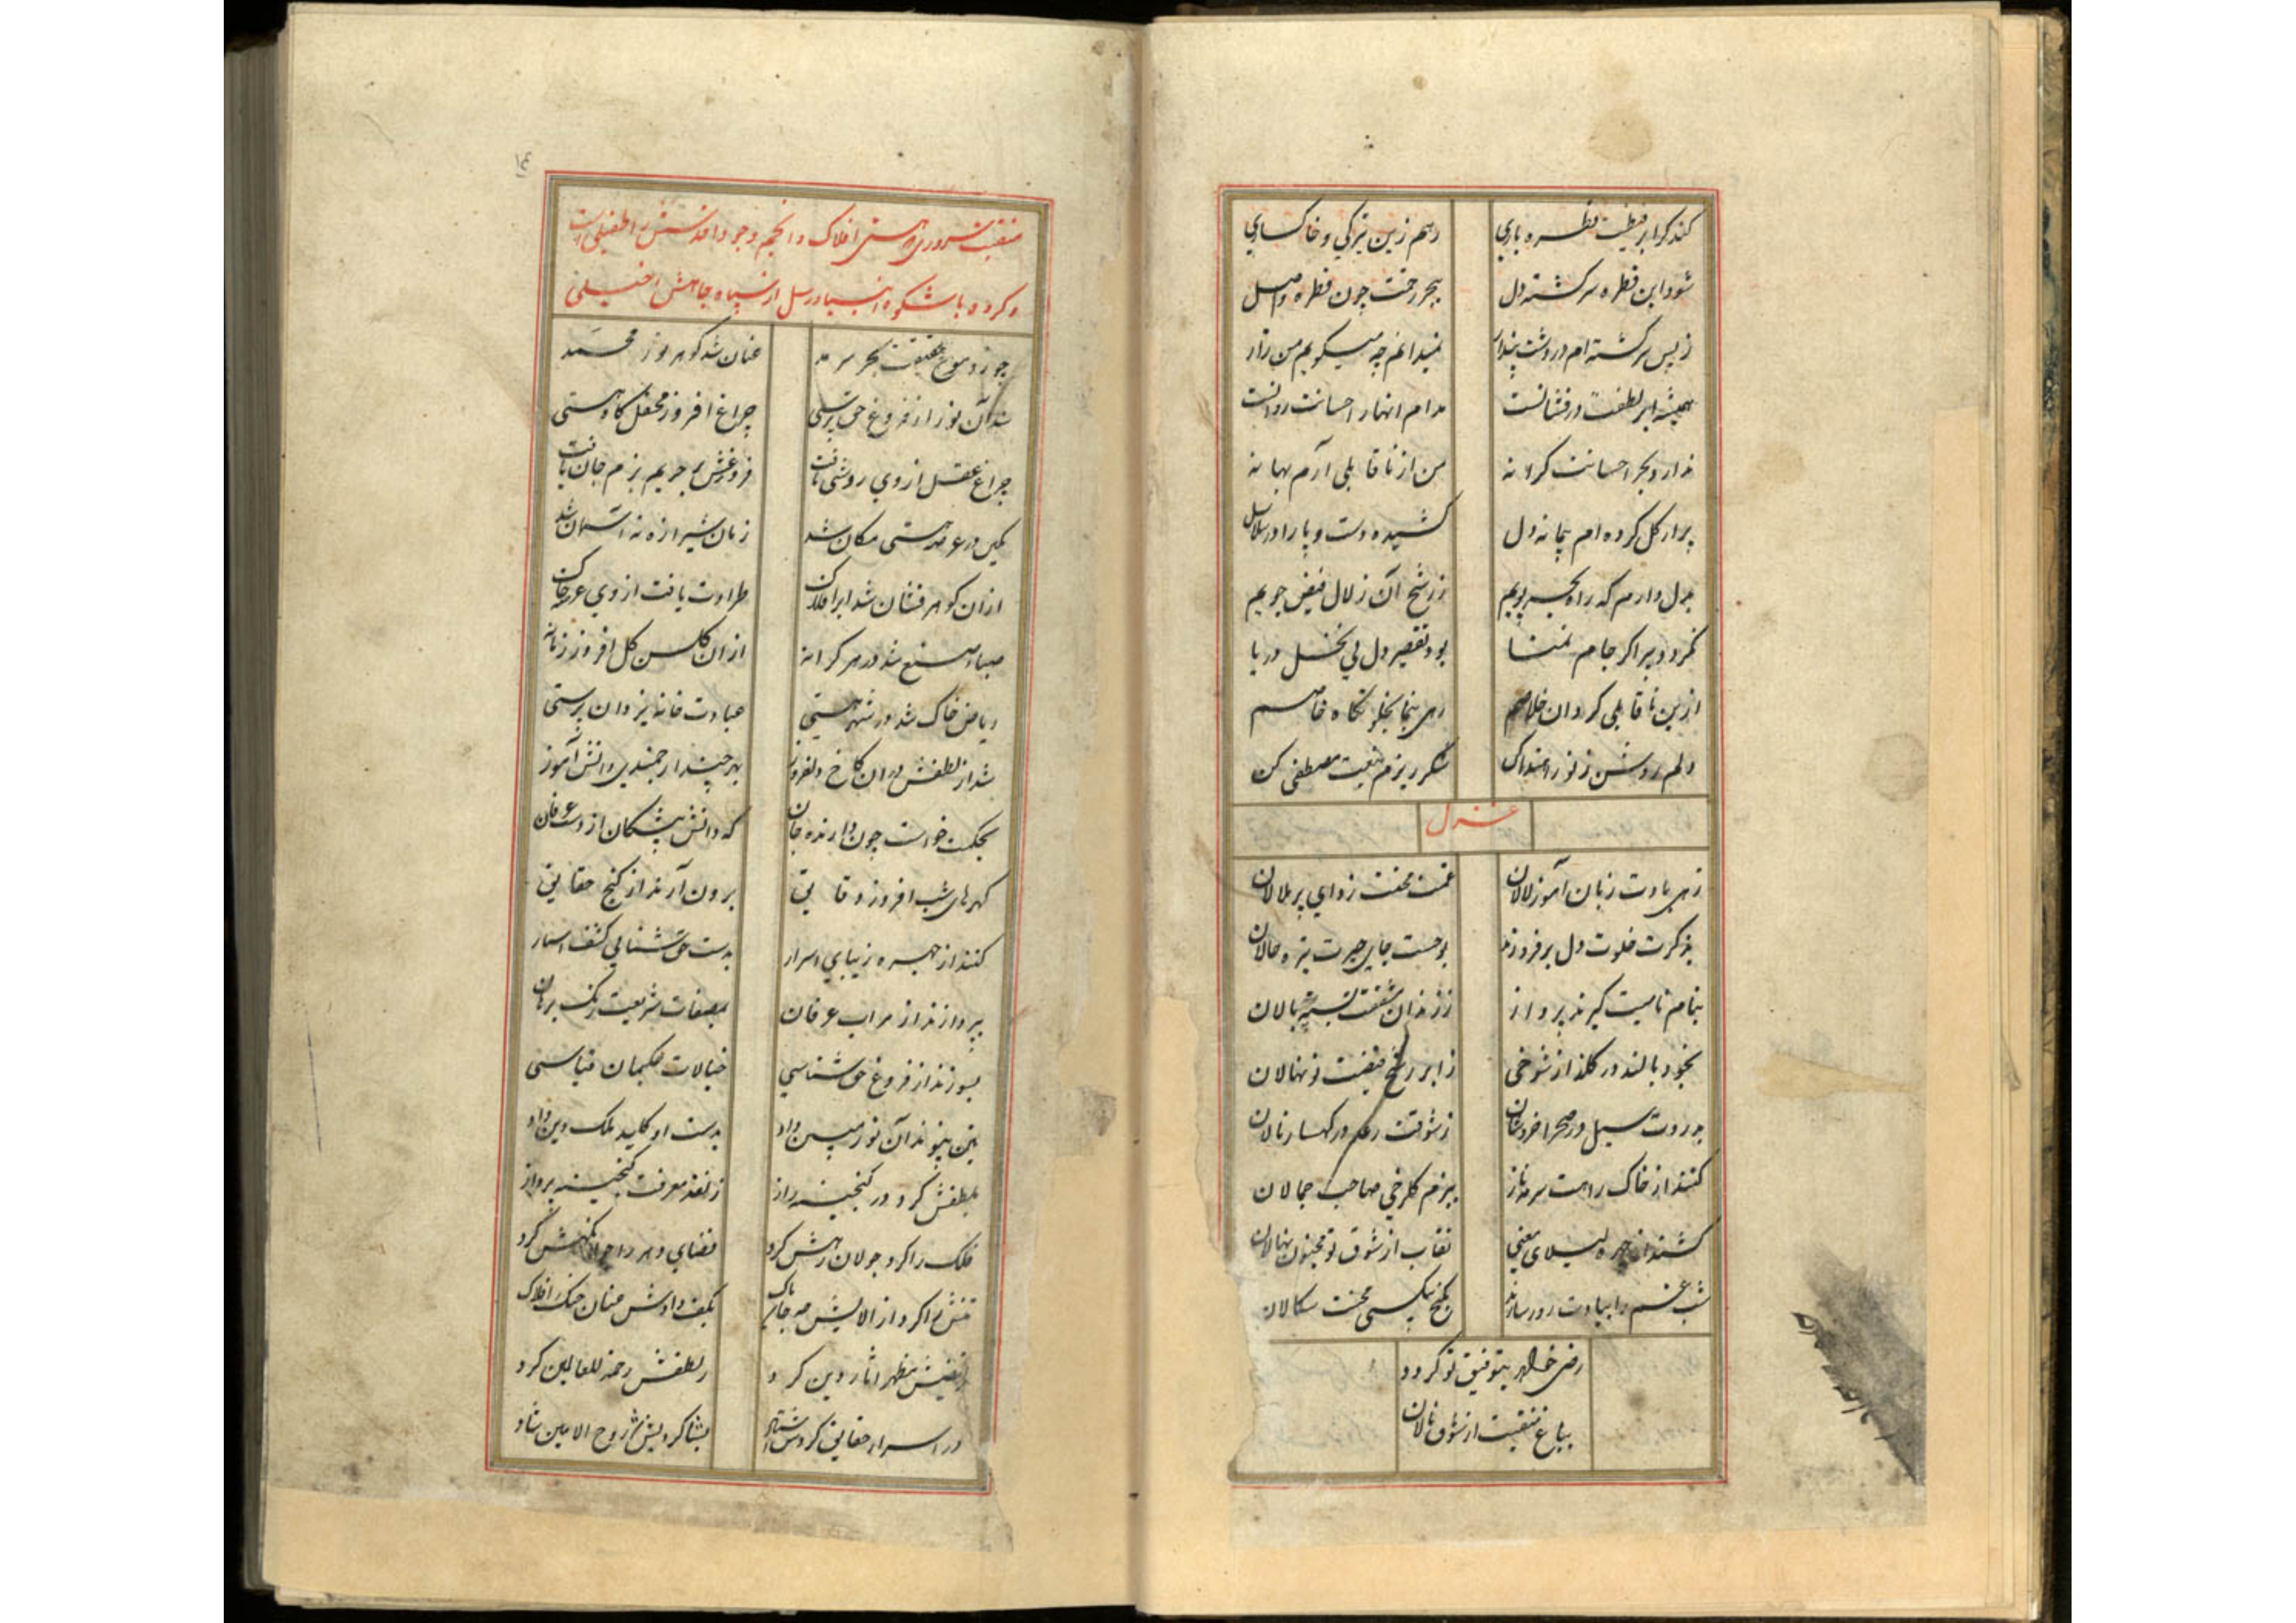 کند کر ابر فیضت قطره باری
رهم زین تیرکی و خاکساری
شود این قطره سرکشته دل
ببحر رحمت چون قطره واصل
ز بس سرکشته ام در دشت پندار
نمیدانم چه میکویم من زار
همیشه ابر لطفت درفشانست
مدام انهار احسانت روانست
ندارد بحر احسانت کرانه
من از ناقابلی آرم بهانه
پر از کل کرده ام پیمانه دل
کشیده دست و پا را در سلاسل
بدل دارم که راه بحر پویم
ز رشح آن زلال فیض جویم
نکردد پر اکر جام تمنا
بود تقصیر دل نی بخل دریا
ازین ناقابلی کردان خلاصم
رهی بنما بخلوتکاه خاصم
دلم روشن ز نور
شکرریزم بنعت مصطفی کن
غزل
زهی یادت زبان آموز لالان
غمت محنت زدای پر ملالان
بذکرت خلوت دل برفروزند
بوحست جای حیرت تیره حالان
بنام نامیت کیرند پرواز
ز زندان شکسته بالان
بخود بالند در کلزار شوخی
ز ابر رشح فیضت نونهالان
بدردت سیل در صحرا خروشان
ز شوقت رعد در کهسار نالان
کنند از خاک راهت سرمه ناز
ببزم کلرخی صاحب جمالان
کشند از چهره لیلای معنی
نقاب از شوق تو مجنون نهالان
شب غم را بیادت روز سازند
بکنج بیکسی محنت سکالان
رضی خواهد بتوفیق تو کردد
بباغ منقبت از شوق نالان
۱٤
منقبت سروری که هستی افلاک و انجم وجود اقدسش را طفیلی است
و کرده با شکوه انبیا و رسل از سپاه جاهش خیلی
چو زد موج حقیقت بحر سرمد
عنان شد کوهر نور محمد
شد آن نور از فروغ حق پرستی
چراغ افروز محفل کاه هستی
چراغ عقل از وی روشنی یافت
فروغش بر حریم بزم جان یافت
مکین در عرصه هستی مکان شد
زمان شیرازه نه آسمان شد
از آن کوهر فشان شد ابر افلاک
طراوت یافت از وی عرصه خاک
صباء صنع شد در هر کرانه
از آن کلشن کل افروز زمانه
ریاض خاک شد در شهر هستی
عبادت خانه یزدان پرستی
شد از لطفش در آن کاخ دلفروز
بهر چیند ارجمندی دانش آموز
بحکمت خواست چون دارنده جان
که دانش پیشکان از دست عرفان
کهرهای شب افروز دقایق
برون آرند از کنج حقایق
کنند از چهره زیبای اسرار
بدست حق شناسی کشف استار
بپردازند از مراب عرفان
بمصفات شریعت زنک برهان
بسوزند از فروغ حق شناسی
خیالات حکیمان قیاسی
بتن پیوند آن نور مبین داد
بدست او کلید ملک دین داد
بلطفش کرد در کنجینه راز
ز نقد معرفت کنجینه پرداز
فلک را کرد جولان رهش کرد
فضای دهر را جولانکهش کرد
تنش را کرد از آلایش پاک
بکف دادش عنان خنک افلاک
ز فیضش مظهر آثار دین کرد
ز لطفش رحمة للعالمین کرد
در اسرار حقایق کردش استاد
بشاکردیش روح الامین شاد